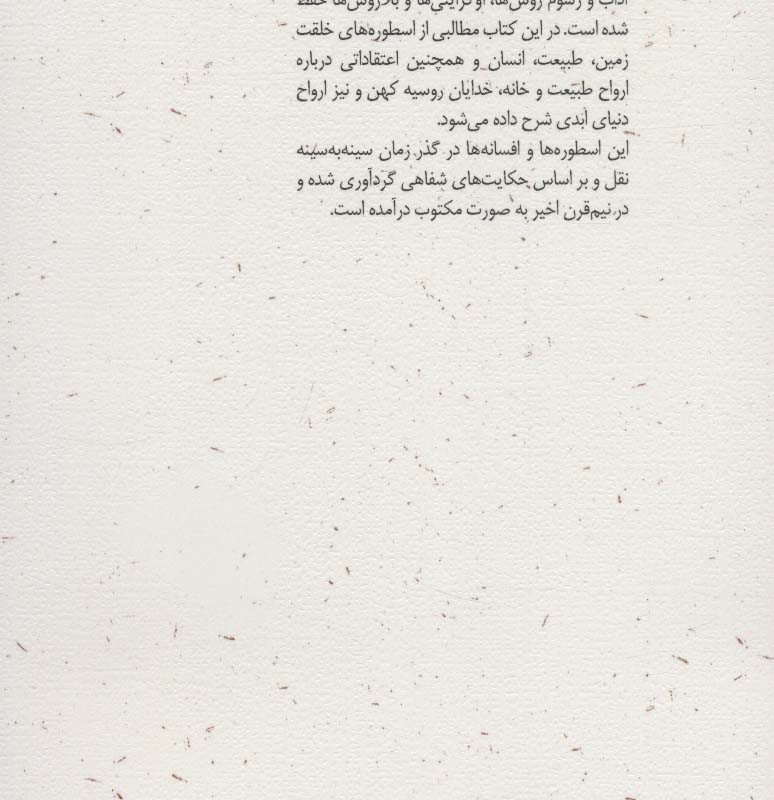 آداب و رسوم روس‌ها، اوکراینی‌ها و بلاروس‌ها حفظ
شده است. در این کتاب مطالبی از اسطوره‌های خلقت
زمین، طبیعت، انسان و همچنین اعتقاداتی درباره
ارواح طبیعت و خانه، خدایان روسیه کهن و نیز ارواح
دنیای ابدی شرح داده می‌شود.
این اسطوره‌ها و افسانه‌ها در گذر زمان سینه‌به‌سینه
نقل و بر اساس حکایت‌های شفاهی گردآوری شده و
در نیم‌قرن اخیر به صورت مکتوب درآمده است.